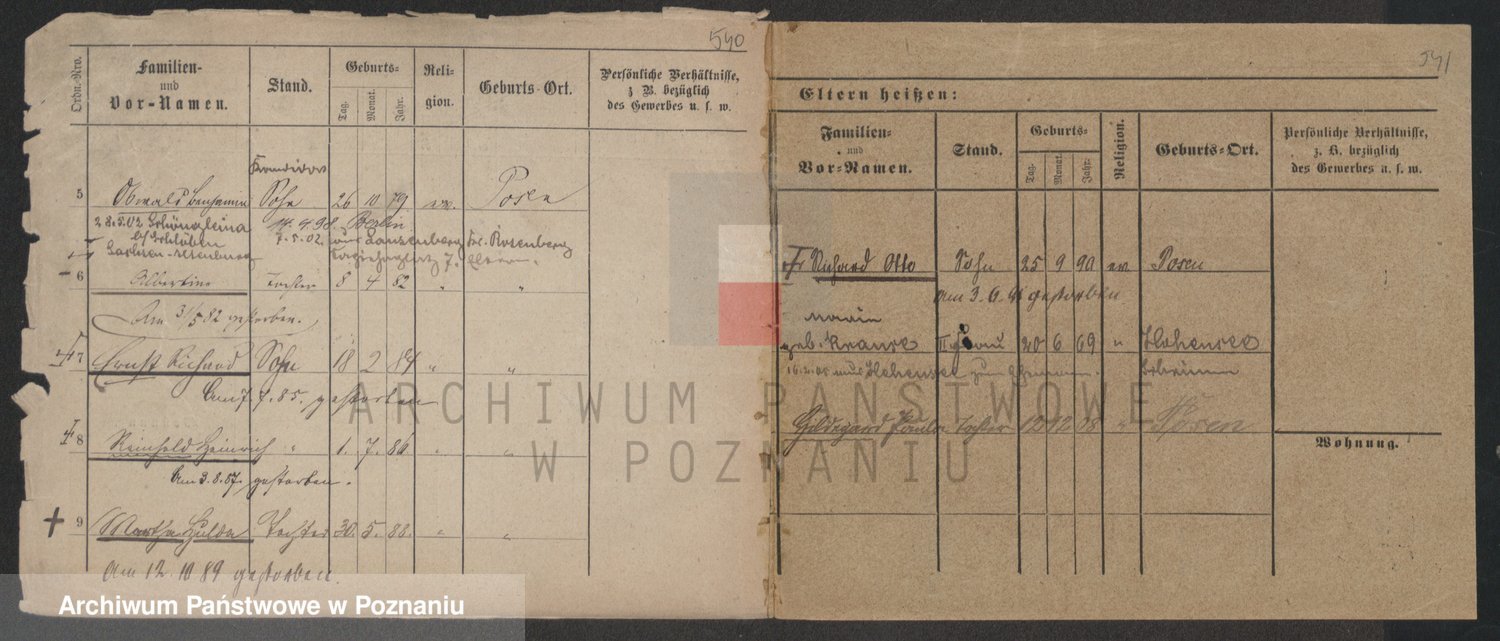 540
Ordn.-Nro.
Familien-
und
Vor-Namen.
Stand.
Geburts-
Tag.
Monat.
Jahr.
Reli-
gion.
Geburts-Ort.
Persönliche Verhältnisse,
z B. bezüglich
des Gewerbes u. s. w.
5
Oswald Benjamin Sohn 26 10 79 ev. Posen
28.5.02 14.4.98 Berlin
7.5.02 aus Rosenberg
6
Albertine Tochter 8 4 82 " "
Am 3/5 82 gestorben.
7 Ernst Richard Sohn 18 2 84 " "
Am 7.7.85. gestorben
8
Reinhold Heinrich " 1. 7. 86 " "
Am 3.8.87. gestorben.
9
Martha Hulda Tochter 30. 5. 88. " "
Am 12.10.89 gestorben.
541
Eltern heißen:
Familien-
und
Vor-Namen.
Stand.
Geburts-
Tag.
Monat.
Jahr.
Religion.
Geburts-Ort.
Persönliche Verhältnisse,
z. B. bezüglich
des Gewerbes u. s. w.
Richard Otto Sohn 25 9 90 ev. Posen
Am 3.6.91 gestorben
geb. Krause Frau 20 6 69 " Hohensee
aus Hohensee Schrimm
Hildegard Paula Tochter 12 12 98 " Posen
Wohnung.
ARCHIWUM PAŃSTWOWE
W POZNANIU
Archiwum Państwowe w Poznaniu